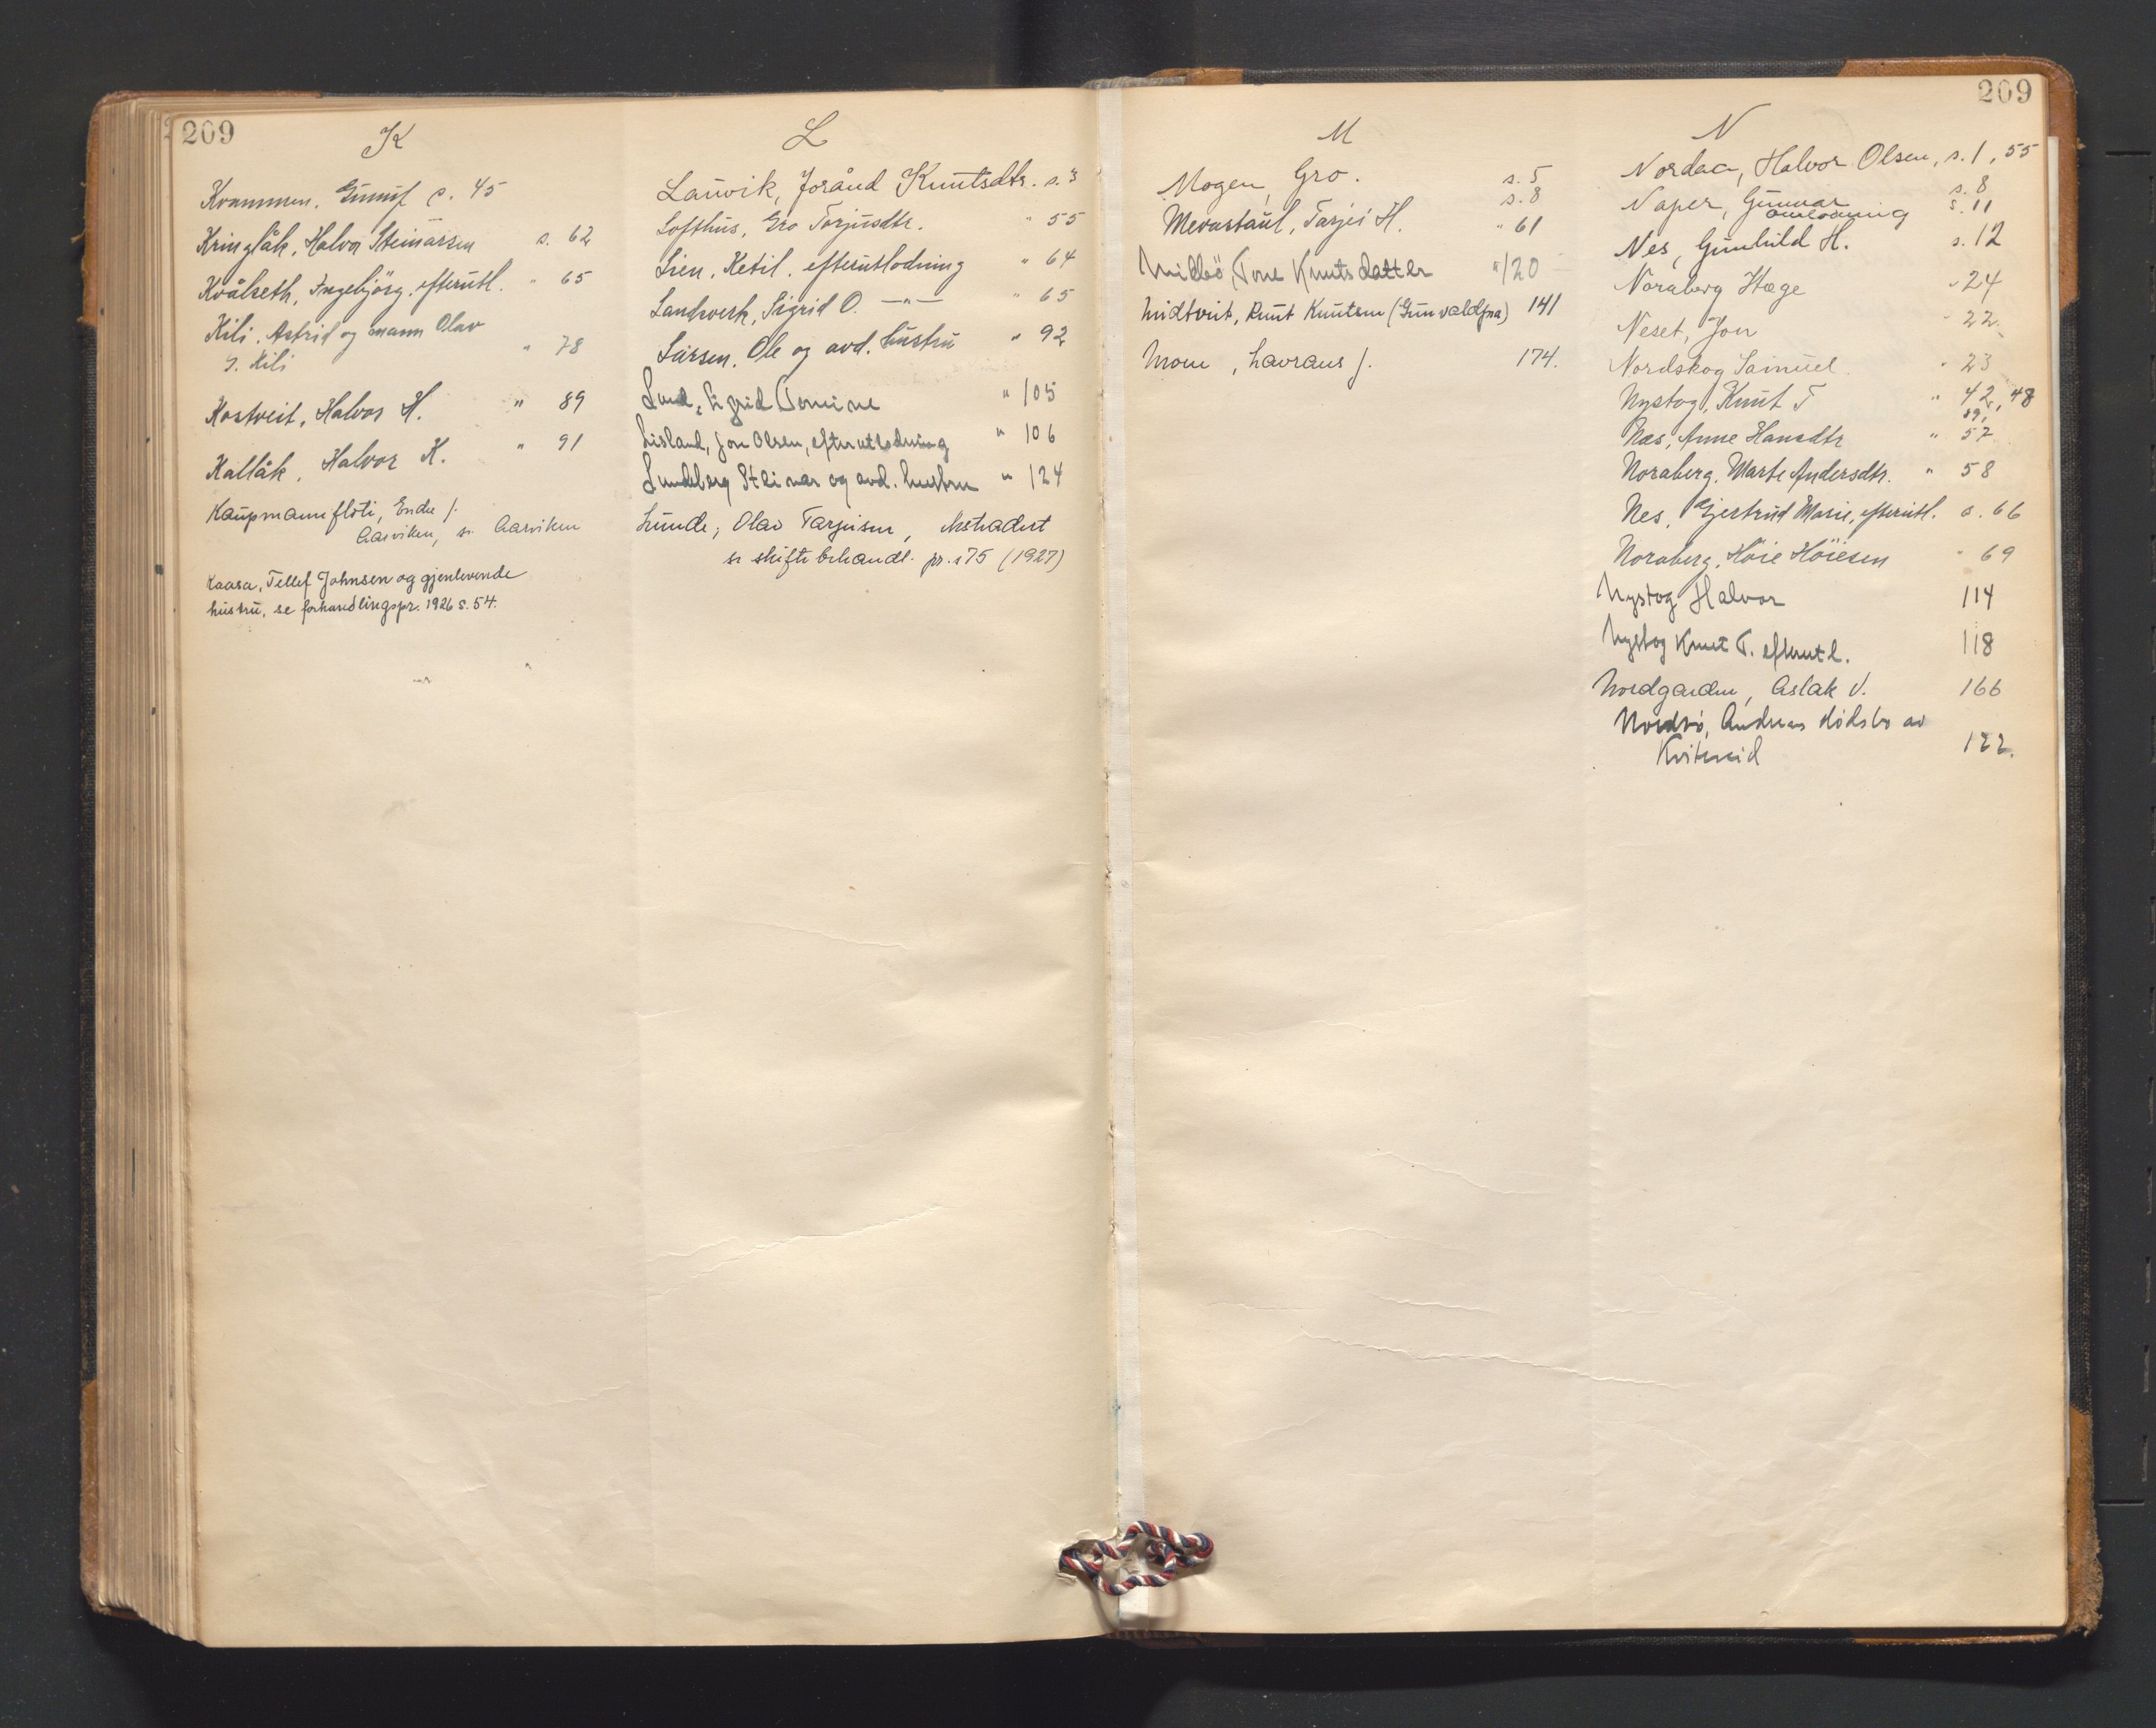 209
K
Kvammen, Gunuf s. 45
Kringlåk, Halvor Steinarsen s. 62
Kvålseth, Ingebjörg, efterutl. " 65
Kili, Astrid og mann Olav
J. Kili " 78
Kostveit, Halvor H. " 89
Kallåk, Halvor K. " 91
Kaupmannflöti, Endre J.
Aarviken, se Aarviken
Kaasa, Tellef Johnsen og gjenlevende
hustru, se forhandlingspr. 1926 s. 54.
L
Lauvik, Joraand Knutsdtr. s. 3
Lofthus, Gro Torjusdtr. " 55
Lien, Ketil, efterutlodning " 64
Landsverk, Sigrid O. —"— " 65
Larsen, Ole og avd. hustru " 92
Lund, Sigrid Tomine " 105
Lisland, Jon Olsen, efterutlodning " 106
Lundeberg Steinar og avd. hustru " 124
Lunde, Olav Tarjeisen,
se skiftebehandl. pr. s 75 (1927)
209
M
Mogen, Gro. s. 5
s. 8
Mevastaul, Tarjei H. " 61
Milbö, Tone Knutsdatter " 120
Midtveit, Knut Knutsen (Gunvaldjra) 141
Moen, Lavrans J. 174.
N
Nordaa, Halvor Olsen, s. 1, 55
Naper, Gunnar s. 8
omlodning s. 11
Nes, Gunhild H. s. 12
Noraberg Hæge " 24
Neset, Jon " 22
Nordskog Samuel " 23
Nystog, Knut T " 42, 48
89,
Næs, Anne Hansdtr " 57
Noraberg, Marte Andersdtr. " 58
Nes, Gjertrud Marie, efterutl. s. 66
Noraberg, Höie Höiesen " 69
Nystog Halvor 114
Nystog Knut T. efterutl. 118
Nordgarden, Aslak V. 166
Nordbø, Andreas dødsbo av
Kviteseid 122.